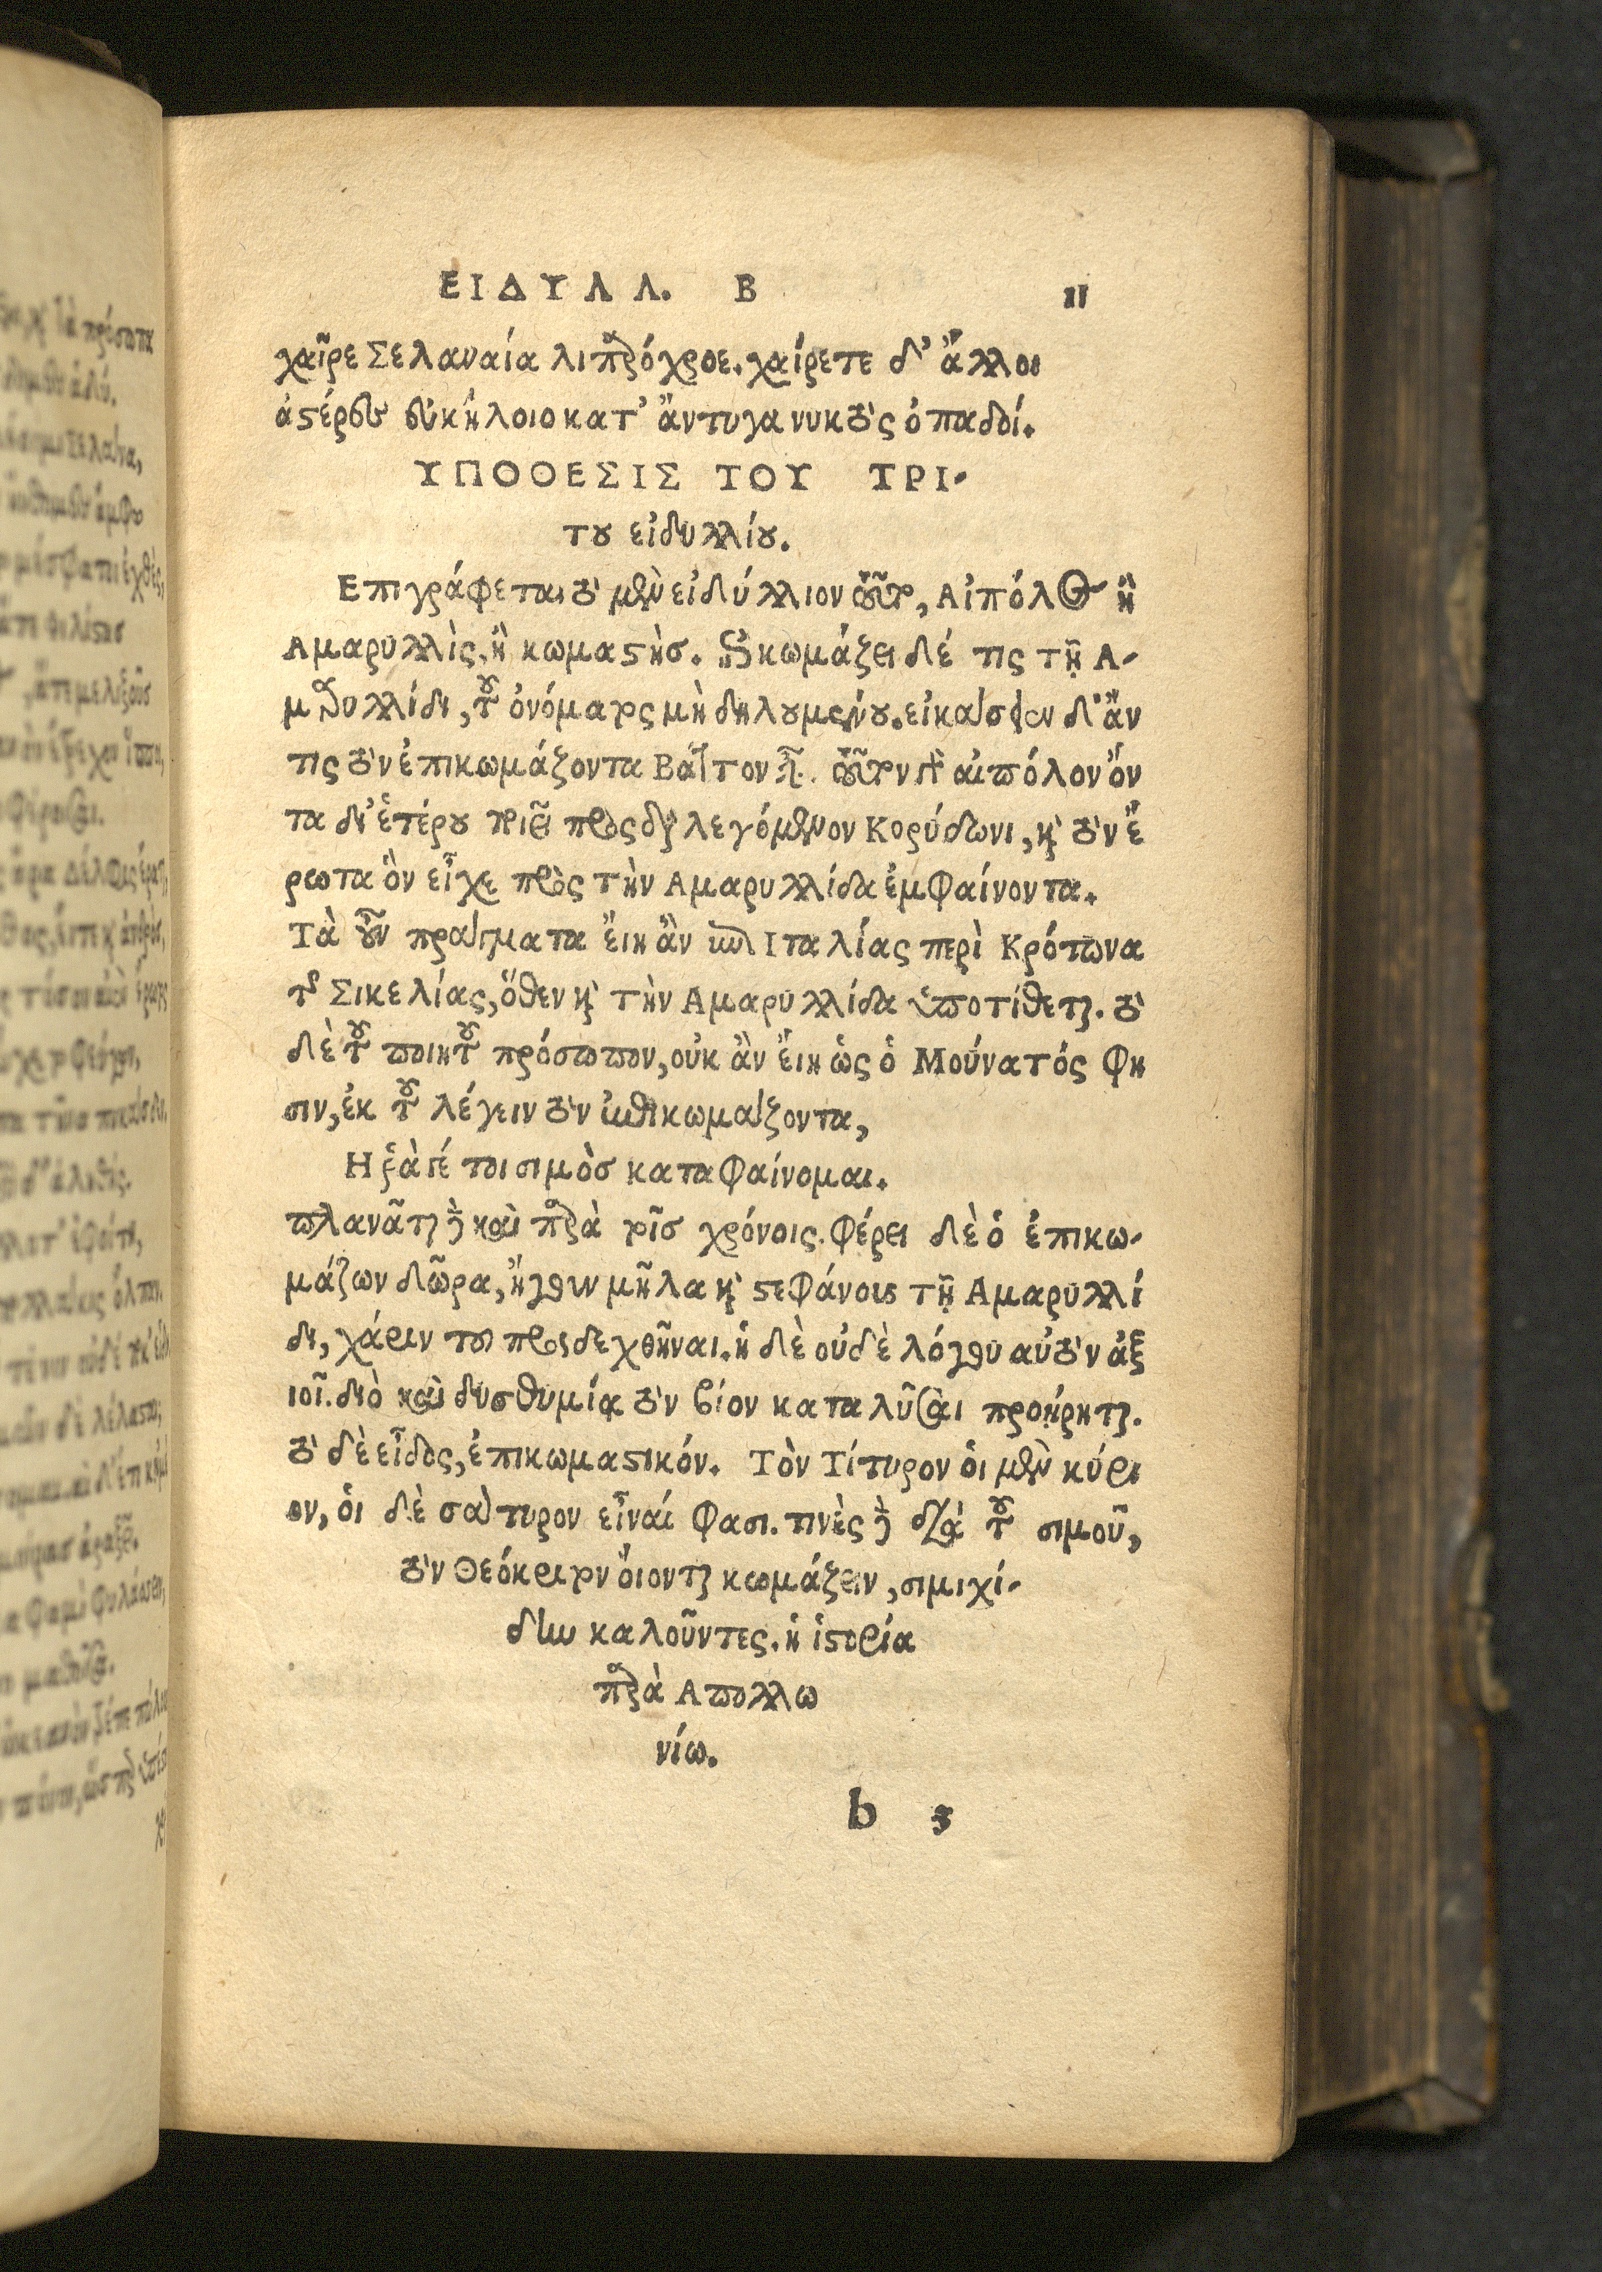 ΕΙΔΥΛΛ. Β 11
χαῖρε Σελαναία λιπαρόχροε. χαίρετε δ' ἄλλοι
ἀστέρες εὐκήλοιο κατ' ἄντυγα νυκτὸς ὀπαδοί.
ΥΠΟΘΕΣΙΣ ΤΟΥ ΤΡΙ-
του εἰδυλλίου.
Επιγράφεται τὸ μὲν εἰδύλλιον τοῦτο, Αἰπόλος ἢ
Αμαρυλλὶς, ἢ κωμαστὴσ. ἐπικωμάζει δέ τις τῇ Α-
μαρυλλίδι, τοῦ ὀνόματος μὴ δηλουμένου. εἰκάσειεν δ' ἄν
τις τὸν ἐπικωμάζοντα Βάττον εἶναι. τοῦτον γὰρ αἰπόλον ὄν
τα δι' ἑτέρου ποιεῖ προσδιαλεγόμενον Κορύδωνι, καὶ τὸν ἔ
ρωτα ὃν εἶχε πρὸς τὴν Αμαρυλλίδα ἐμφαίνοντα.
Τὰ οὖν πράγματα ἔιη ἂν ἐπὶ Ιταλίας περὶ Κρότωνα
τῆς Σικελίας, ὅθεν καὶ τὴν Αμαρυλλίδα ὑποτίθεται. τὸ
δὲ τοῦ ποιητοῦ πρόσωπον, οὐκ ἂν ἔιη ὡς ὁ Μούνατός φη
σιν, ἐκ τοῦ λέγειν τὸν ἐπικωμάζοντα,
Η ῥά γέ τοι σιμὸσ καταφαίνομαι.
πλανᾶται δὲ καὶ παρὰ τοῖσ χρόνοις. φέρει δὲ ὁ ἐπικω-
μάζων δῶρα, ἤγουν μῆλα καὶ στεφάνους τῇ Αμαρυλλί
δι, χάριν τοῦ προσδεχθῆναι. ἡ δὲ οὐδὲ λόγου αὐτὸν ἀξ
ιοῖ. διὸ καὶ δυσθυμίᾳ τὸν βίον καταλῦσαι προῄρηται.
τὸ δὲ εἶδος, ἐπικωμαστικόν. Τὸν Τίτυρον ὁι μὲν κύρι
ον, ὁι δὲ σάτυρον εἶναί φασι. τινὲς δὲ διὰ τοῦ σιμοῦ,
τὸν Θεόκριτον ὄιονται κωμάζειν, σιμιχί-
δην καλοῦντες. ἡ ἱστορία
παρὰ Απολλω
νίω.
b 3